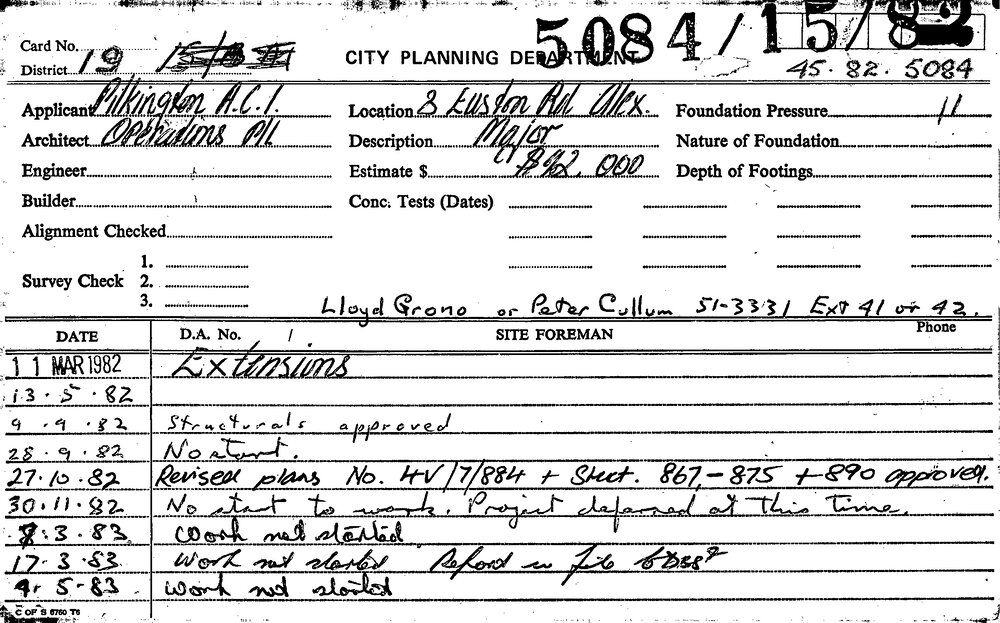 5084/15/82
Card No.
CITY PLANNING DEPARTMENT
District 19
45.82.5084
Applicant Pilkington A.C.I. Location 8 Euston Rd Alex. Foundation Pressure
Architect Operations P/L Description Major Nature of Foundation
Engineer Estimate $ 92,000 Depth of Footings
Builder Conc. Tests (Dates)
Alignment Checked
1.
Survey Check 2.
3.
Lloyd Grono or Peter Cullum 51-3331 Ext 41 or 42.
DATE D.A. No. / SITE FOREMAN Phone
11 MAR 1982 Extensions
13.5.82
9.9.82 Structurals approved
28.9.82 No start.
27.10.82 Revised plans No. 4V/7/884 + Struct. 867-875 + 890 approved.
30.11.82 No start to work. Project deferred at this time.
8.3.83 Work not started
17.3.83 Work not started in file
9.5.83 Work not started
C OF S 6760 T6